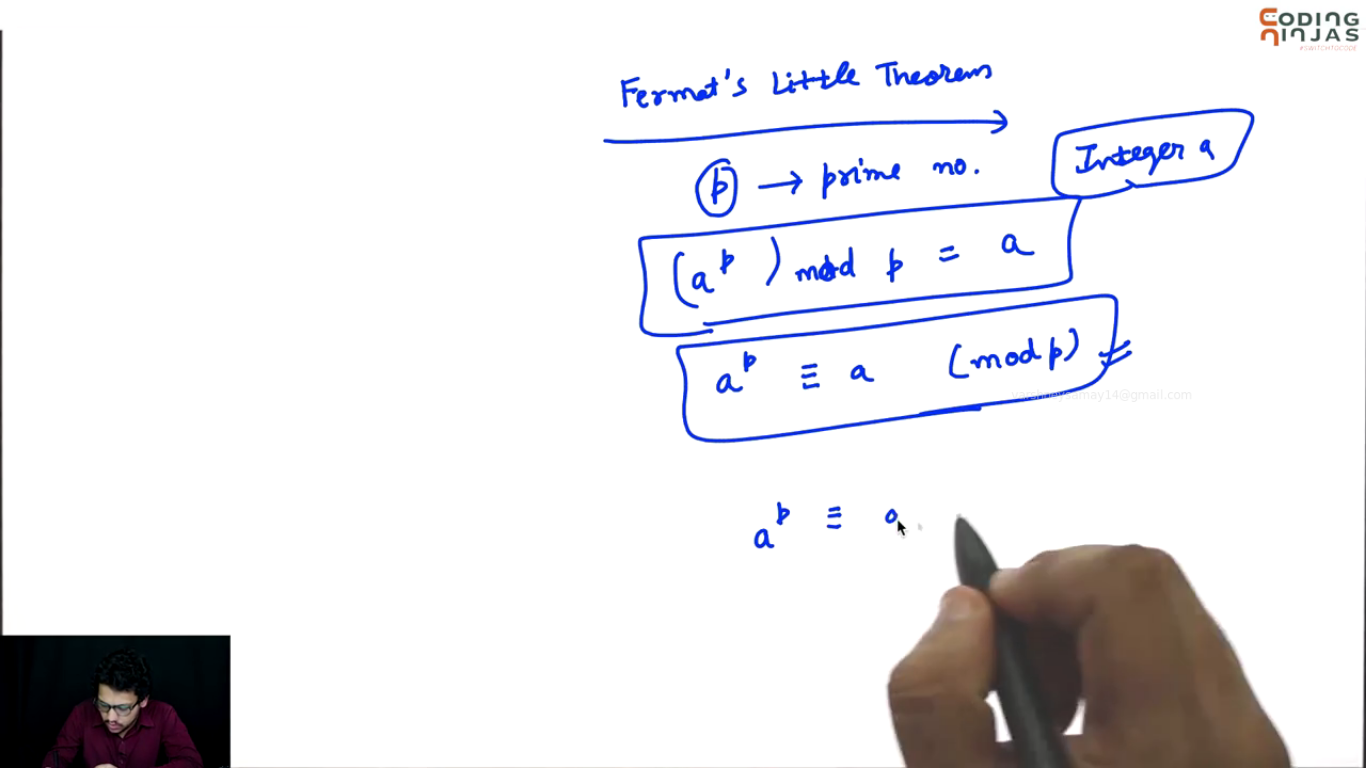 CODING
NINJAS
#SWITCHTOCODE
Fermat's Little Theorem
p → prime no.
Integer a
(a^p) mod p = a
a^p ≡ a (mod p)
a^p ≡ a